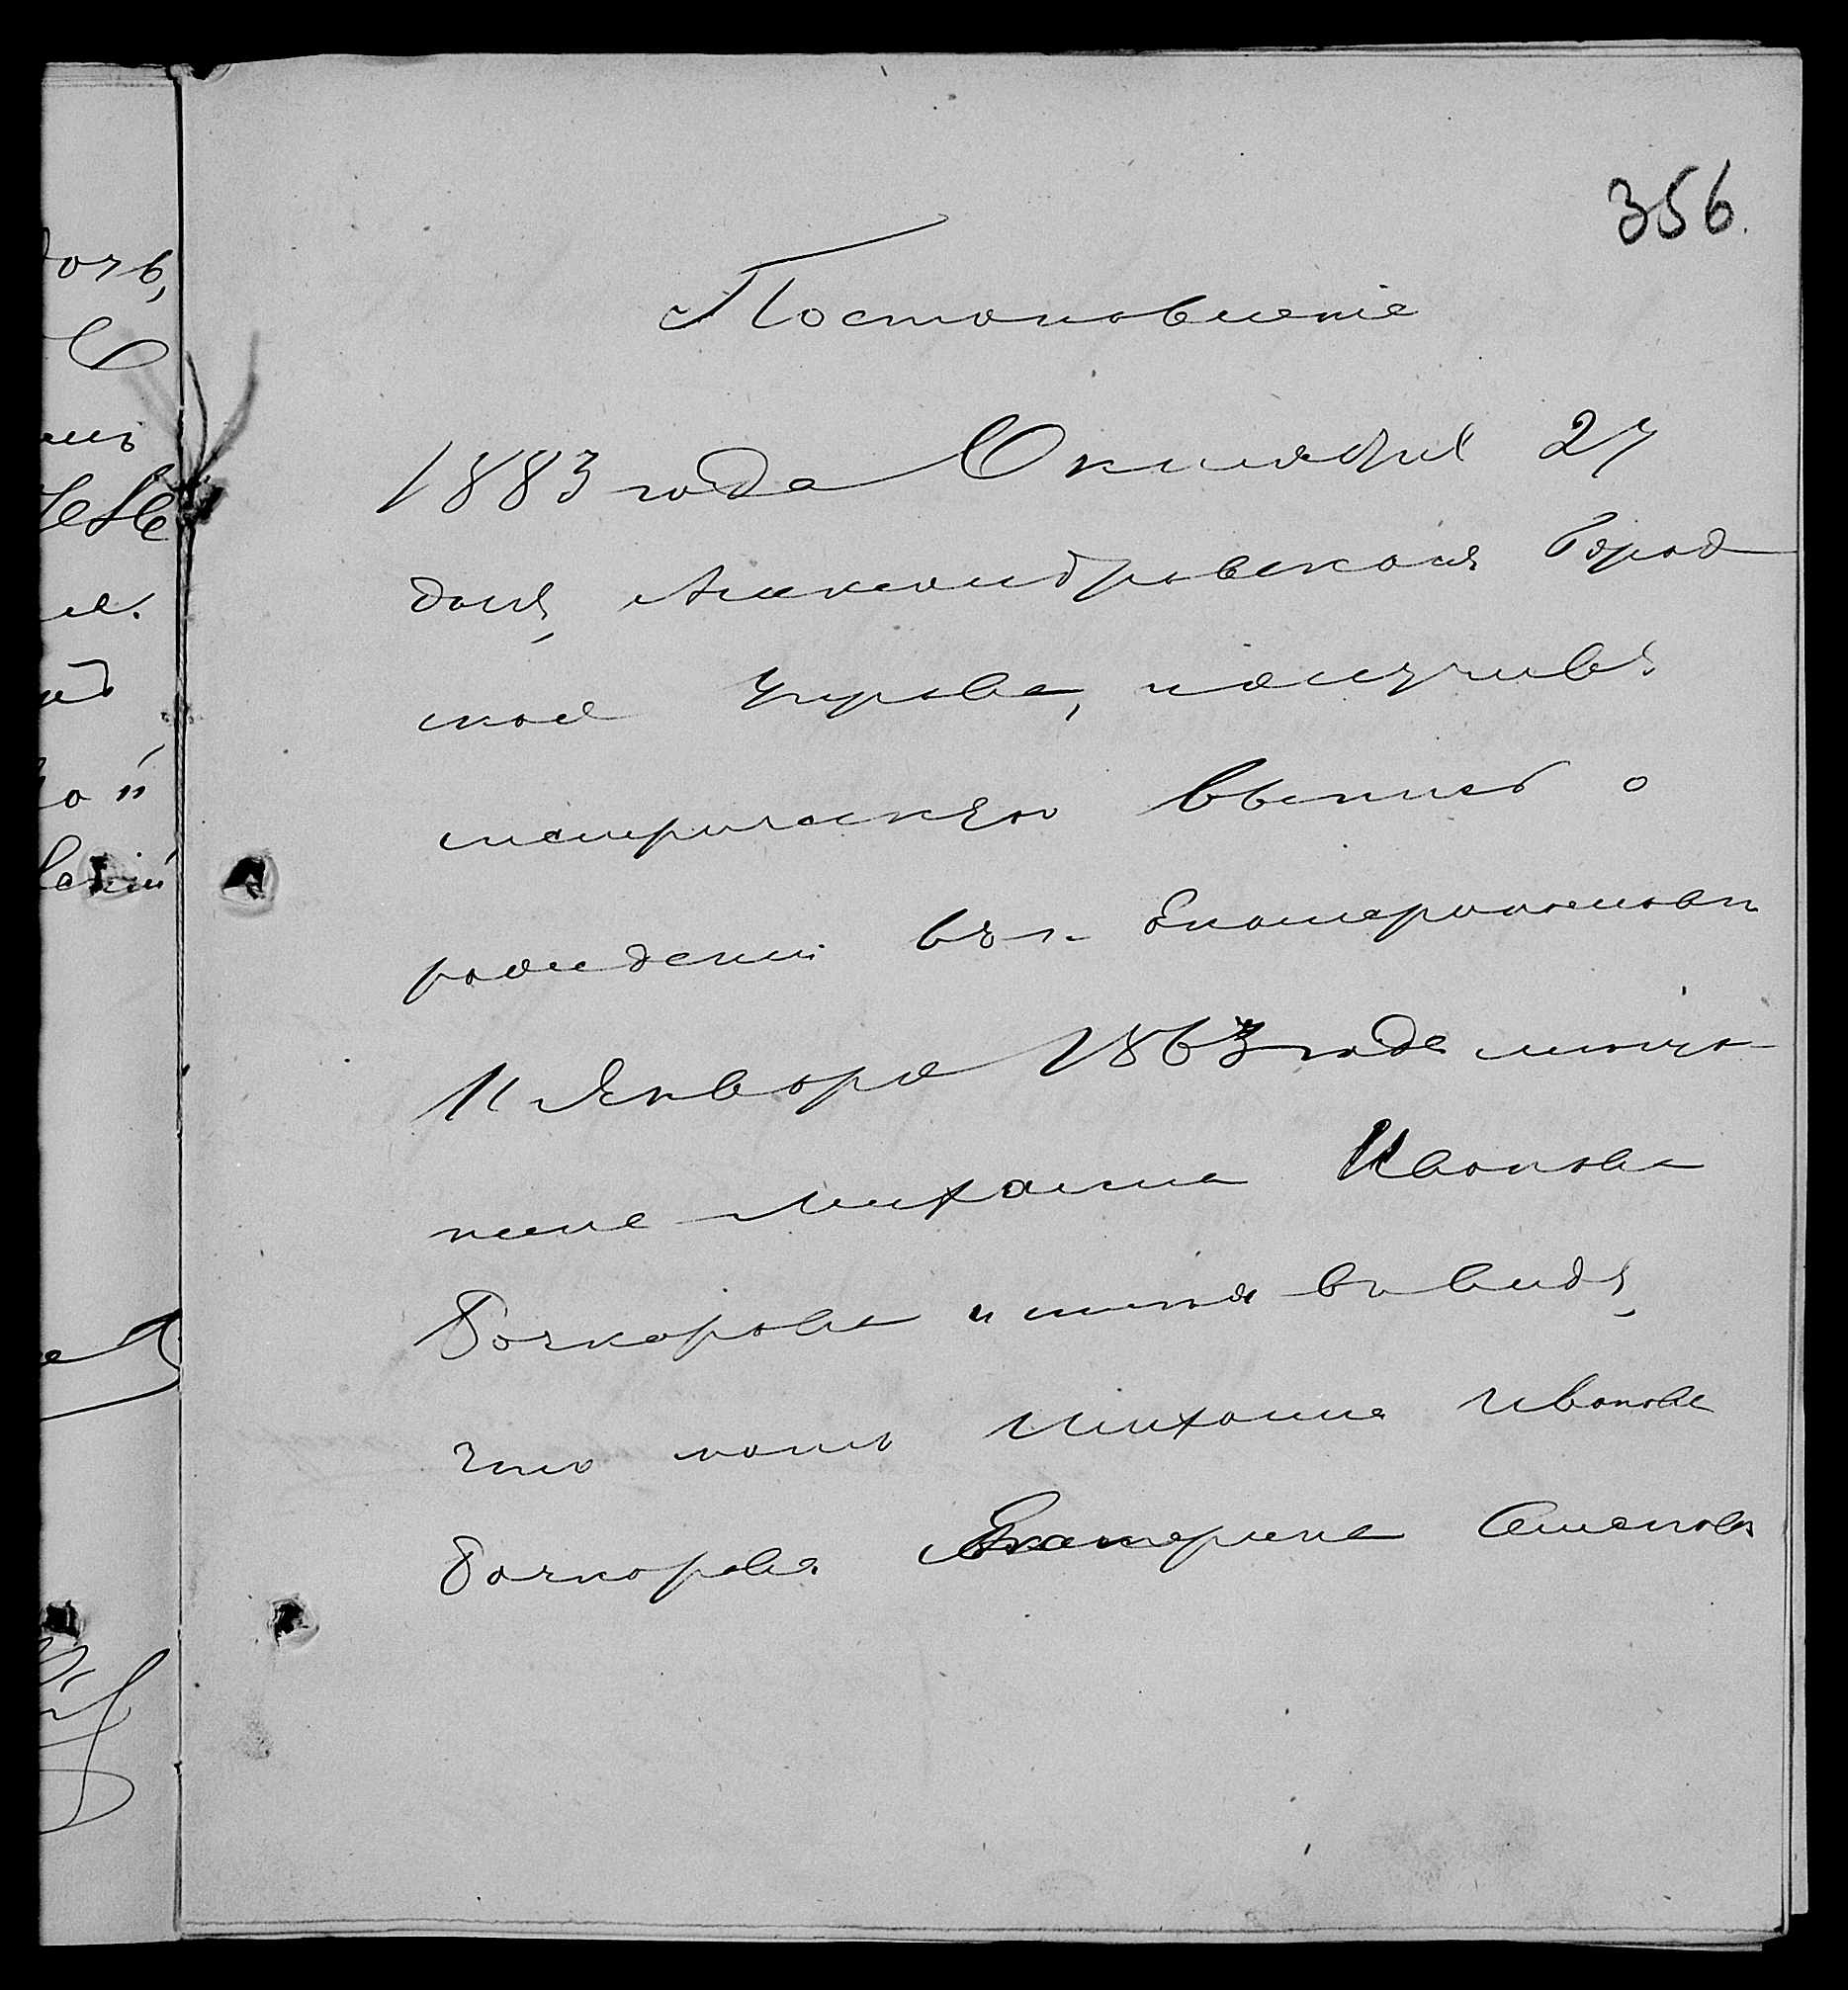 356.
Постановленіе
1883 года Октября 27
дня, Александровская Город
ская Управа, получивъ
метрическую выпись о
рожденіи въ г. Екатеринославѣ
11 Января 1863 года мѣща
нина Михаила Иванова
Бочкарова и имѣя въ виду,
что мать Михаила Иванова
Бочкарова Екатерина Семенова